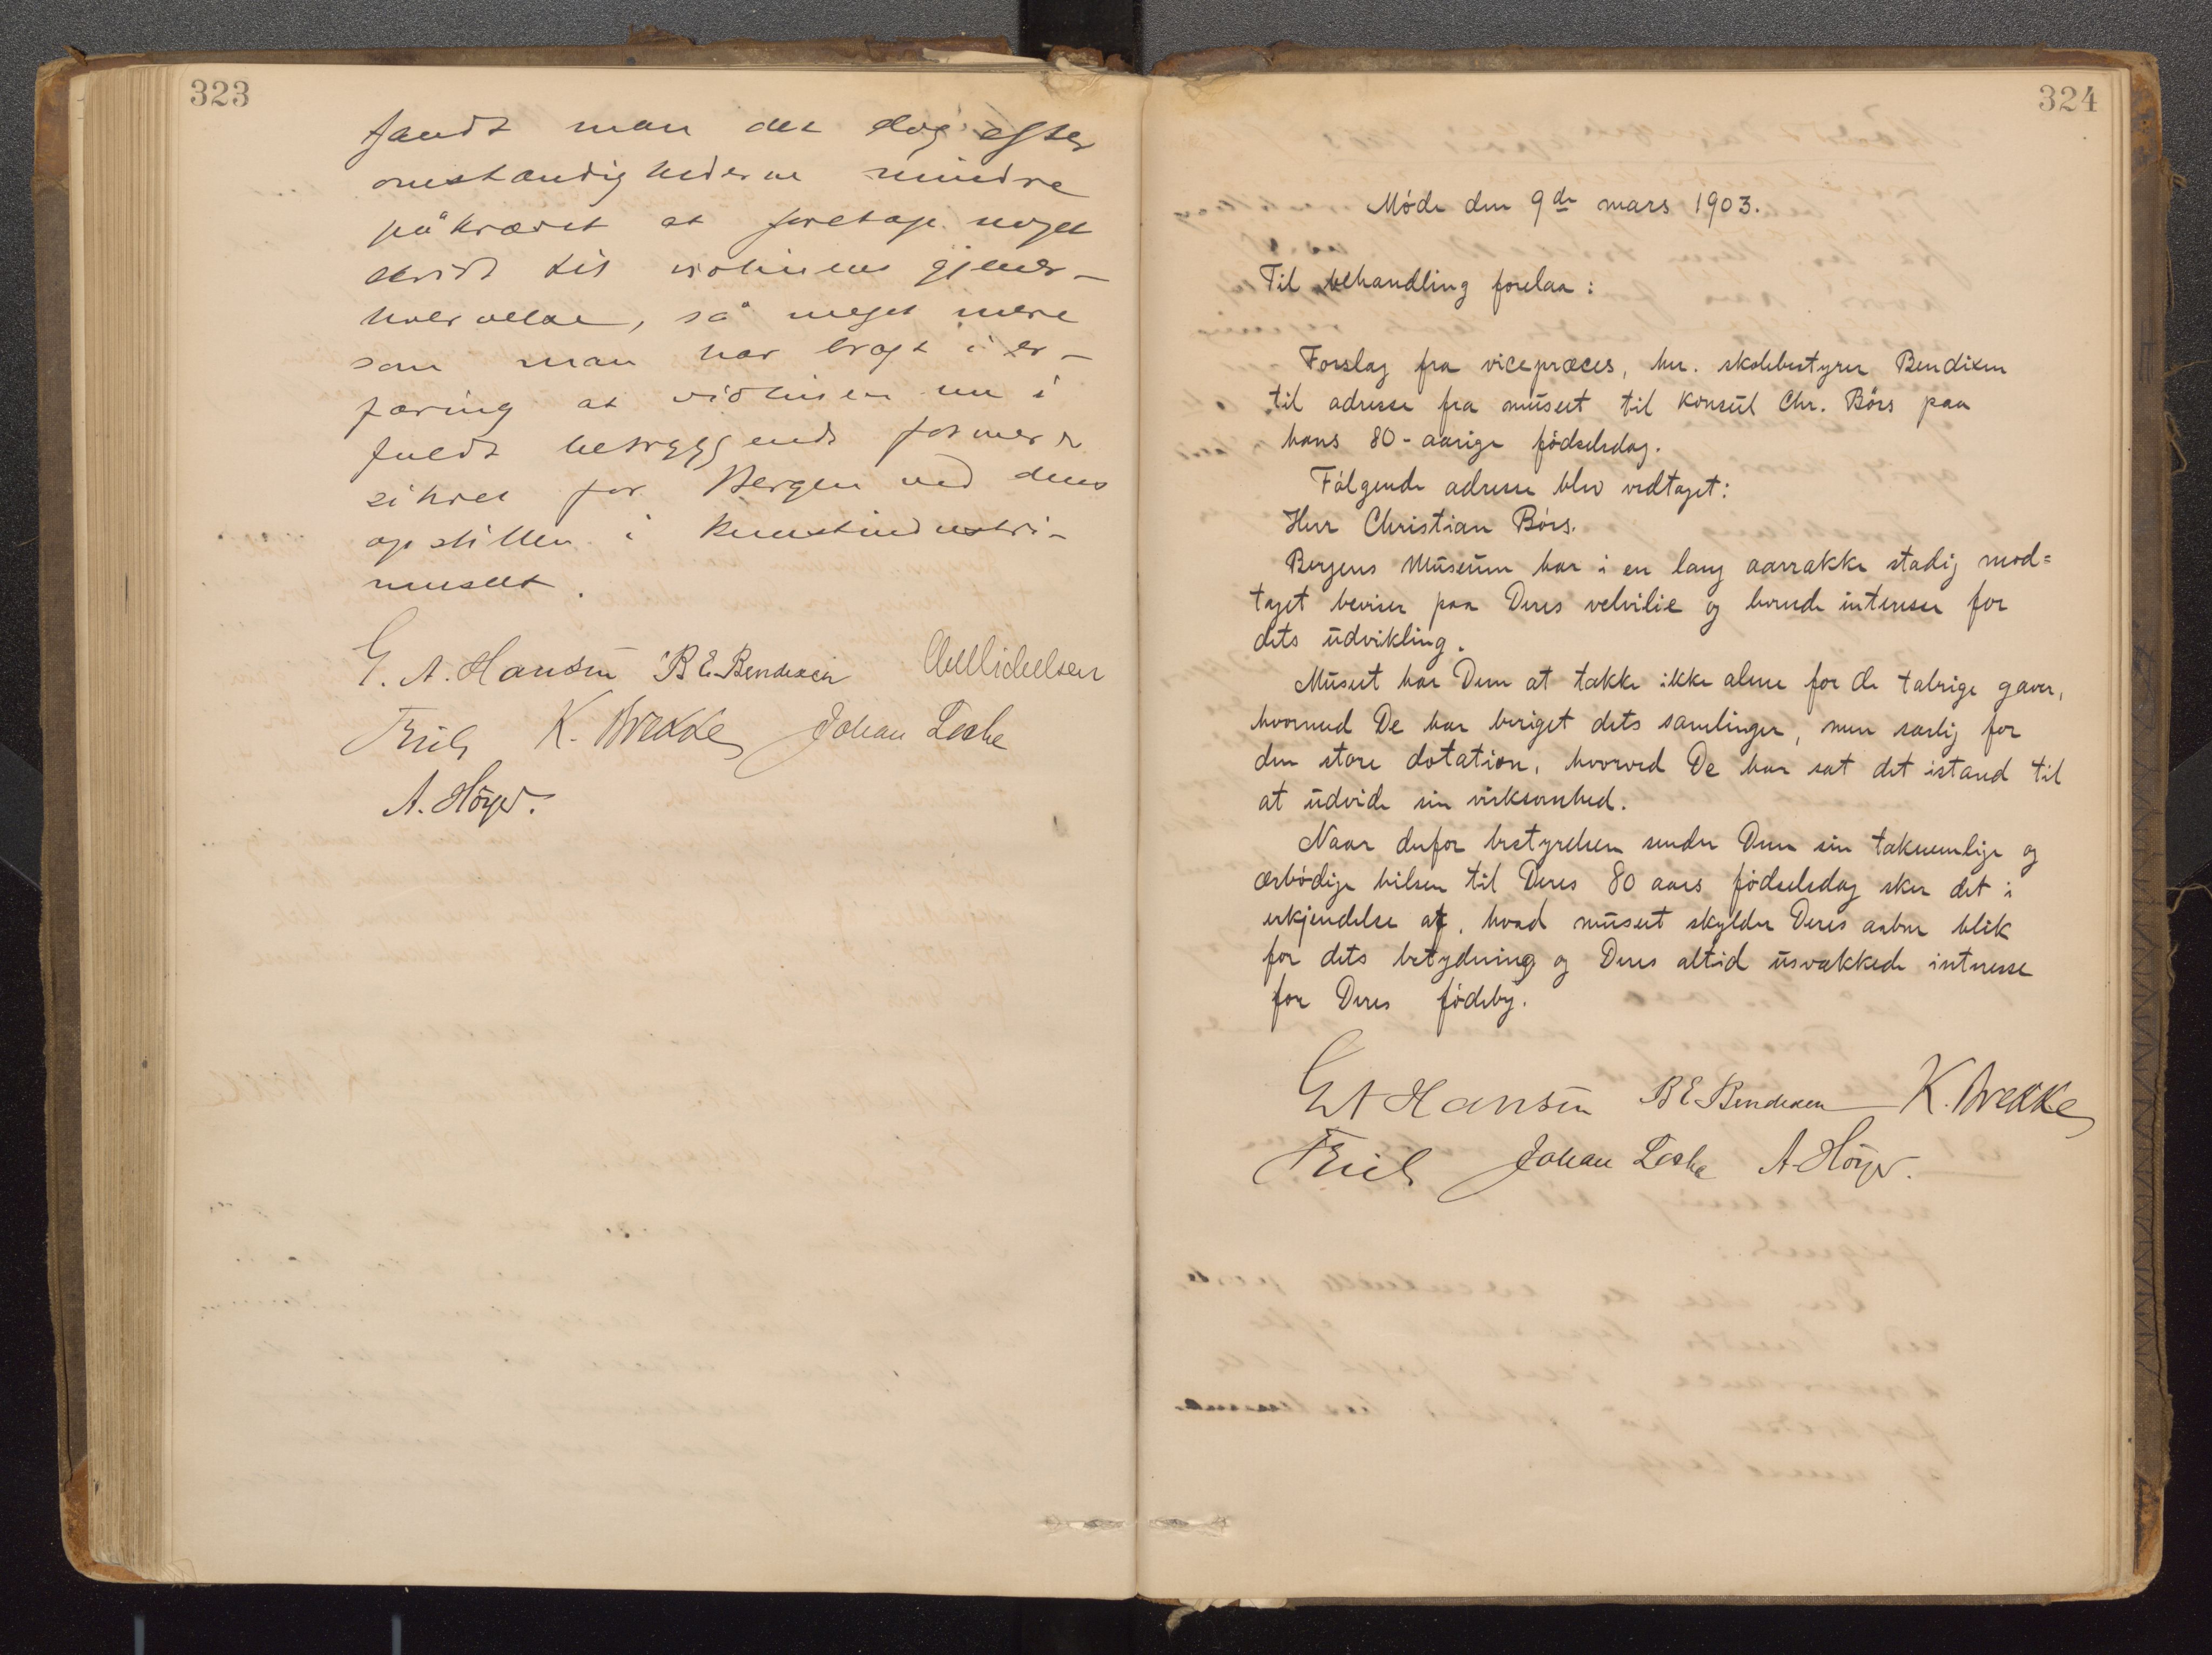 323
fandt man det dog efter
omstændighederne mindre
påkrævet at foretage noget
skridt til violinens gjener-
hvervelse, så meget mere
som man har bragt i er-
faring at violinen nu i
fuldt betryggende former er
sikret for Bergen ved dens
opstillen i Kunstindustri-
museet.
G. A. Hansen B E Bendixen Chr Michelsen
Friele K. Brekke Johan Lothe
A. Höyer.
324
Møde den 9de mars 1903.
Til behandling forelaa:
Forslag fra vicepræces, hr. skolebestyrer Bendixen
til adresse fra museet til Konsul Chr. Børs paa
hans 80-aarige fødselsdag.
Følgende adresse blev vedtaget:
Herr Christian Børs.
Bergens Museum har i en lang aarrække stadig mod=
taget beviser paa Deres velvilie og levende interesse for
dets udvikling.
Museet har Dem at takke ikke alene for de talrige gaver,
hvormed De har beriget dets samlinger, men særlig for
den store dotation, hvorved De har sat det istand til
at udvide sin virksomhed.
Naar derfor bestyrelsen sender Dem sin taknemlige og
ærbødige hilsen til Deres 80 aars fødselsdag sker det i
erkjendelse af, hvad museet skylder Deres aabne blik
for dets betydning og Deres altid usvækkede interesse
for Deres fødeby.
G A Hansen B E Bendixen K. Brekke
Friele Johan Lothe A. Höyer.